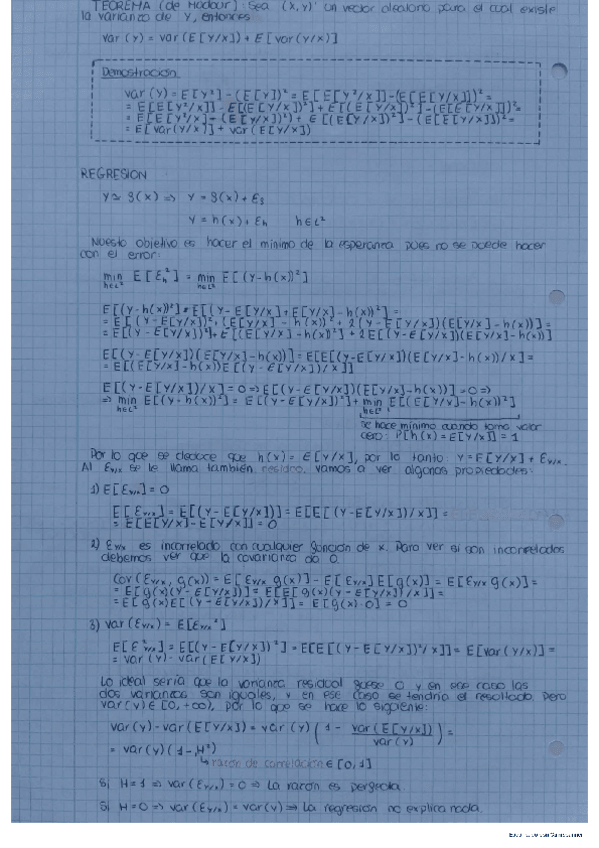 TEOREMA (de Madour): Sea (X,Y)' un vector aleatorio para el cual existe
la varianza de Y, entonces
var(Y) = var(E[Y/X]) + E[var(Y/X)]
Demostración.
var(Y) = E[Y²] - (E[Y])² = E[E[Y²/X]] - (E[E[Y/X]])² =
= E[E[Y²/X]] - E[(E[Y/X])²] + E[(E[Y/X])²] - (E[E[Y/X]])² =
= E[E[Y²/X] - (E[Y/X])²] + E[(E[Y/X])²] - (E[E[Y/X]])² =
= E[var(Y/X)] + var(E[Y/X])
REGRESION
Y ≃ g(X) ⇒ Y = g(X) + Eg
Y = h(X) + Eh h∈L²
Nuesto objetivo es hacer el minimo de la esperanza pues no se puede hacer
con el error:
min E[Eh²] = min E[(Y-h(X))²]
h∈L² h∈L²
E[(Y-h(X))²] = E[(Y-E[Y/X]+E[Y/X]-h(X))²] =
= E[(Y-E[Y/X])² + (E[Y/X]-h(X))² + 2(Y-E[Y/X])(E[Y/X]-h(X))] =
= E[(Y-E[Y/X])²] + E[(E[Y/X]-h(X))²] + 2E[(Y-E[Y/X])(E[Y/X]-h(X))]
E[(Y-E[Y/X])(E[Y/X]-h(X))] = E[E[(Y-E[Y/X])(E[Y/X]-h(X))/X] =
= E[(E[Y/X]-h(X))E[(Y-E[Y/X])/X]]
E[(Y-E[Y/X])/X] = 0 ⇒ E[(Y-E[Y/X])(E[Y/X]-h(X))] = 0 ⇒
⇒ min E[(Y-h(X))²] = E[(Y-E[Y/X])²] + min E[(E[Y/X]-h(X))²]
h∈L² h∈L²
se hace mínimo cuando toma valor
cero: P[h(X) = E[Y/X]] = 1
Por lo que se deduce que h(X) = E[Y/X], por lo tanto: Y = E[Y/X] + EY/X.
Al EY/X se le llama también residuo. Vamos a ver algunas propiedades:
1) E[EY/X] = 0
E[EY/X] = E[(Y-E[Y/X])] = E[E[(Y-E[Y/X])/X]] =
= E[E[Y/X]-E[Y/X]] = 0
2) EY/X es incorrelado con cualquier función de X. Para ver si son incorrelados
debemos ver que la covarianza da 0.
Cov(EY/X, g(X)) = E[EY/X g(X)] - E[EY/X]E[g(X)] = E[EY/X g(X)] =
= E[g(X)(Y-E[Y/X])] = E[E[g(X)(Y-E[Y/X])/X]] =
= E[g(X)E[(Y-E[Y/X])/X]] = E[g(X)·0] = 0
3) var(EY/X) = E[EY/X²]
E[E²Y/X] = E[(Y-E[Y/X])²] = E[E[(Y-E[Y/X])²/X]] = E[var(Y/X)] =
= var(Y) - var(E[Y/X])
Lo ideal sería que la varianza residual fuese 0 y en ese caso las
dos varianzas son iguales, y en ese caso se tendría el resultado. Pero
var(Y) ∈ [0,+∞), por lo que se hace lo siguiente:
var(Y) - var(E[Y/X]) = var(Y) (1 - var(E[Y/X]) / var(Y)) =
= var(Y)(1-H²)
↳ razón de correlación ∈ [0,1]
Si H=1 ⇒ var(EY/X) = 0 ⇒ La razón es perfecta.
Si H=0 ⇒ var(EY/X) = var(Y) ⇒ La regresión no explica nada.